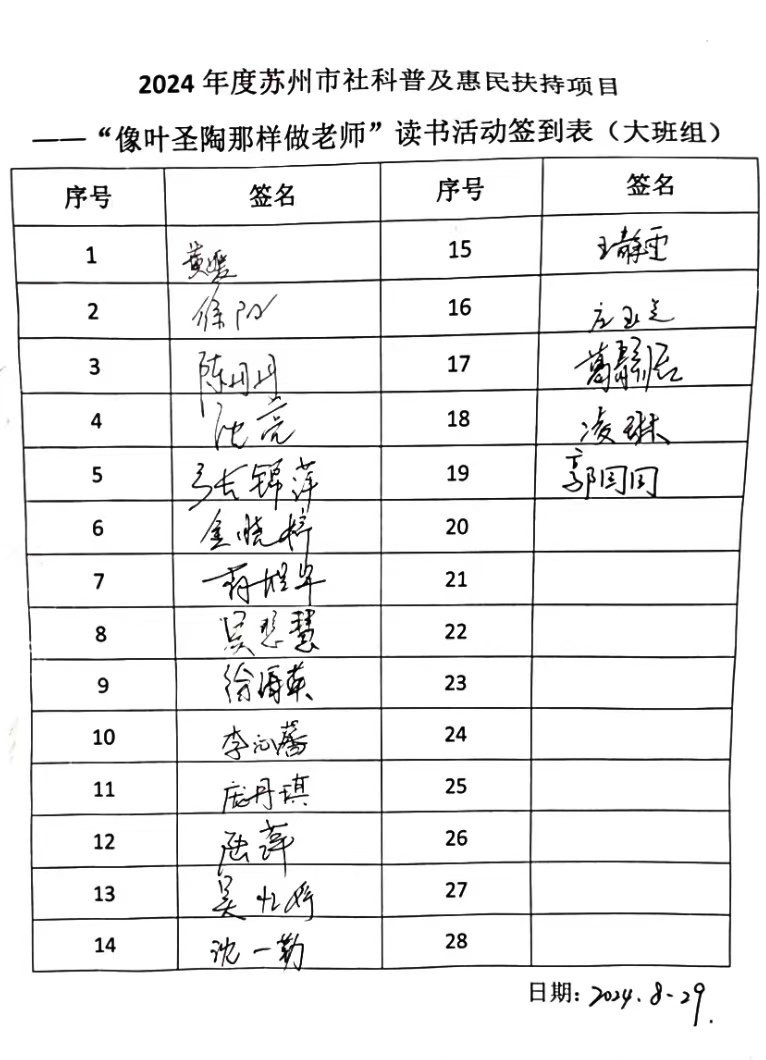 2024 年度苏州市社科普及惠民扶持项目
——“像叶圣陶那样做老师”读书活动签到表（大班组）
序号 签名 序号 签名
1 黄 15 王静雯
2 徐阳 16
3 陈丹丹 17 葛
4 沈亮 18 凌琳
5 张锦萍 19 郭囡囡
6 金晓婷 20
7 21
8 吴慧 22
9 徐海英 23
10 李沁蕃 24
11 庞丹琪 25
12 陆萍 26
13 吴忆婷 27
14 沈一勤 28
日期：2024.8-29.